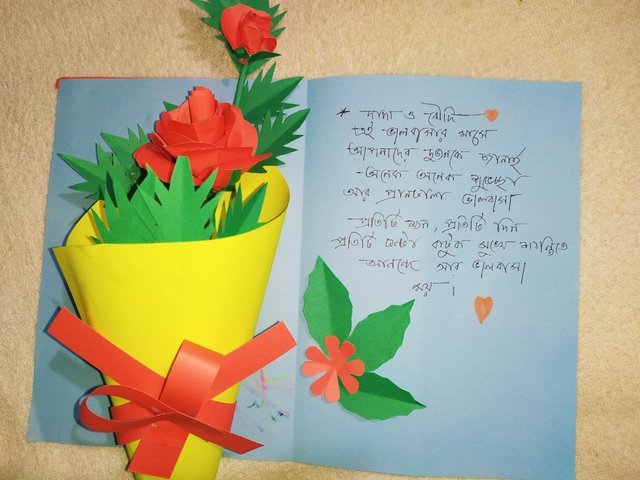 * দাদা ও বৌদি
এই ভালবাসার মাসে
আপনাদের দুজনকে জানাই
অনেক অনেক শুভেচ্ছা
আর প্রাণঢালা ভালবাসা
প্রতিটি ক্ষন, প্রতিটি দিন
প্রতিটি ঘন্টা কাটুক সুখে শান্তিতে
আনন্দে আর ভালবাসা
ময় ।